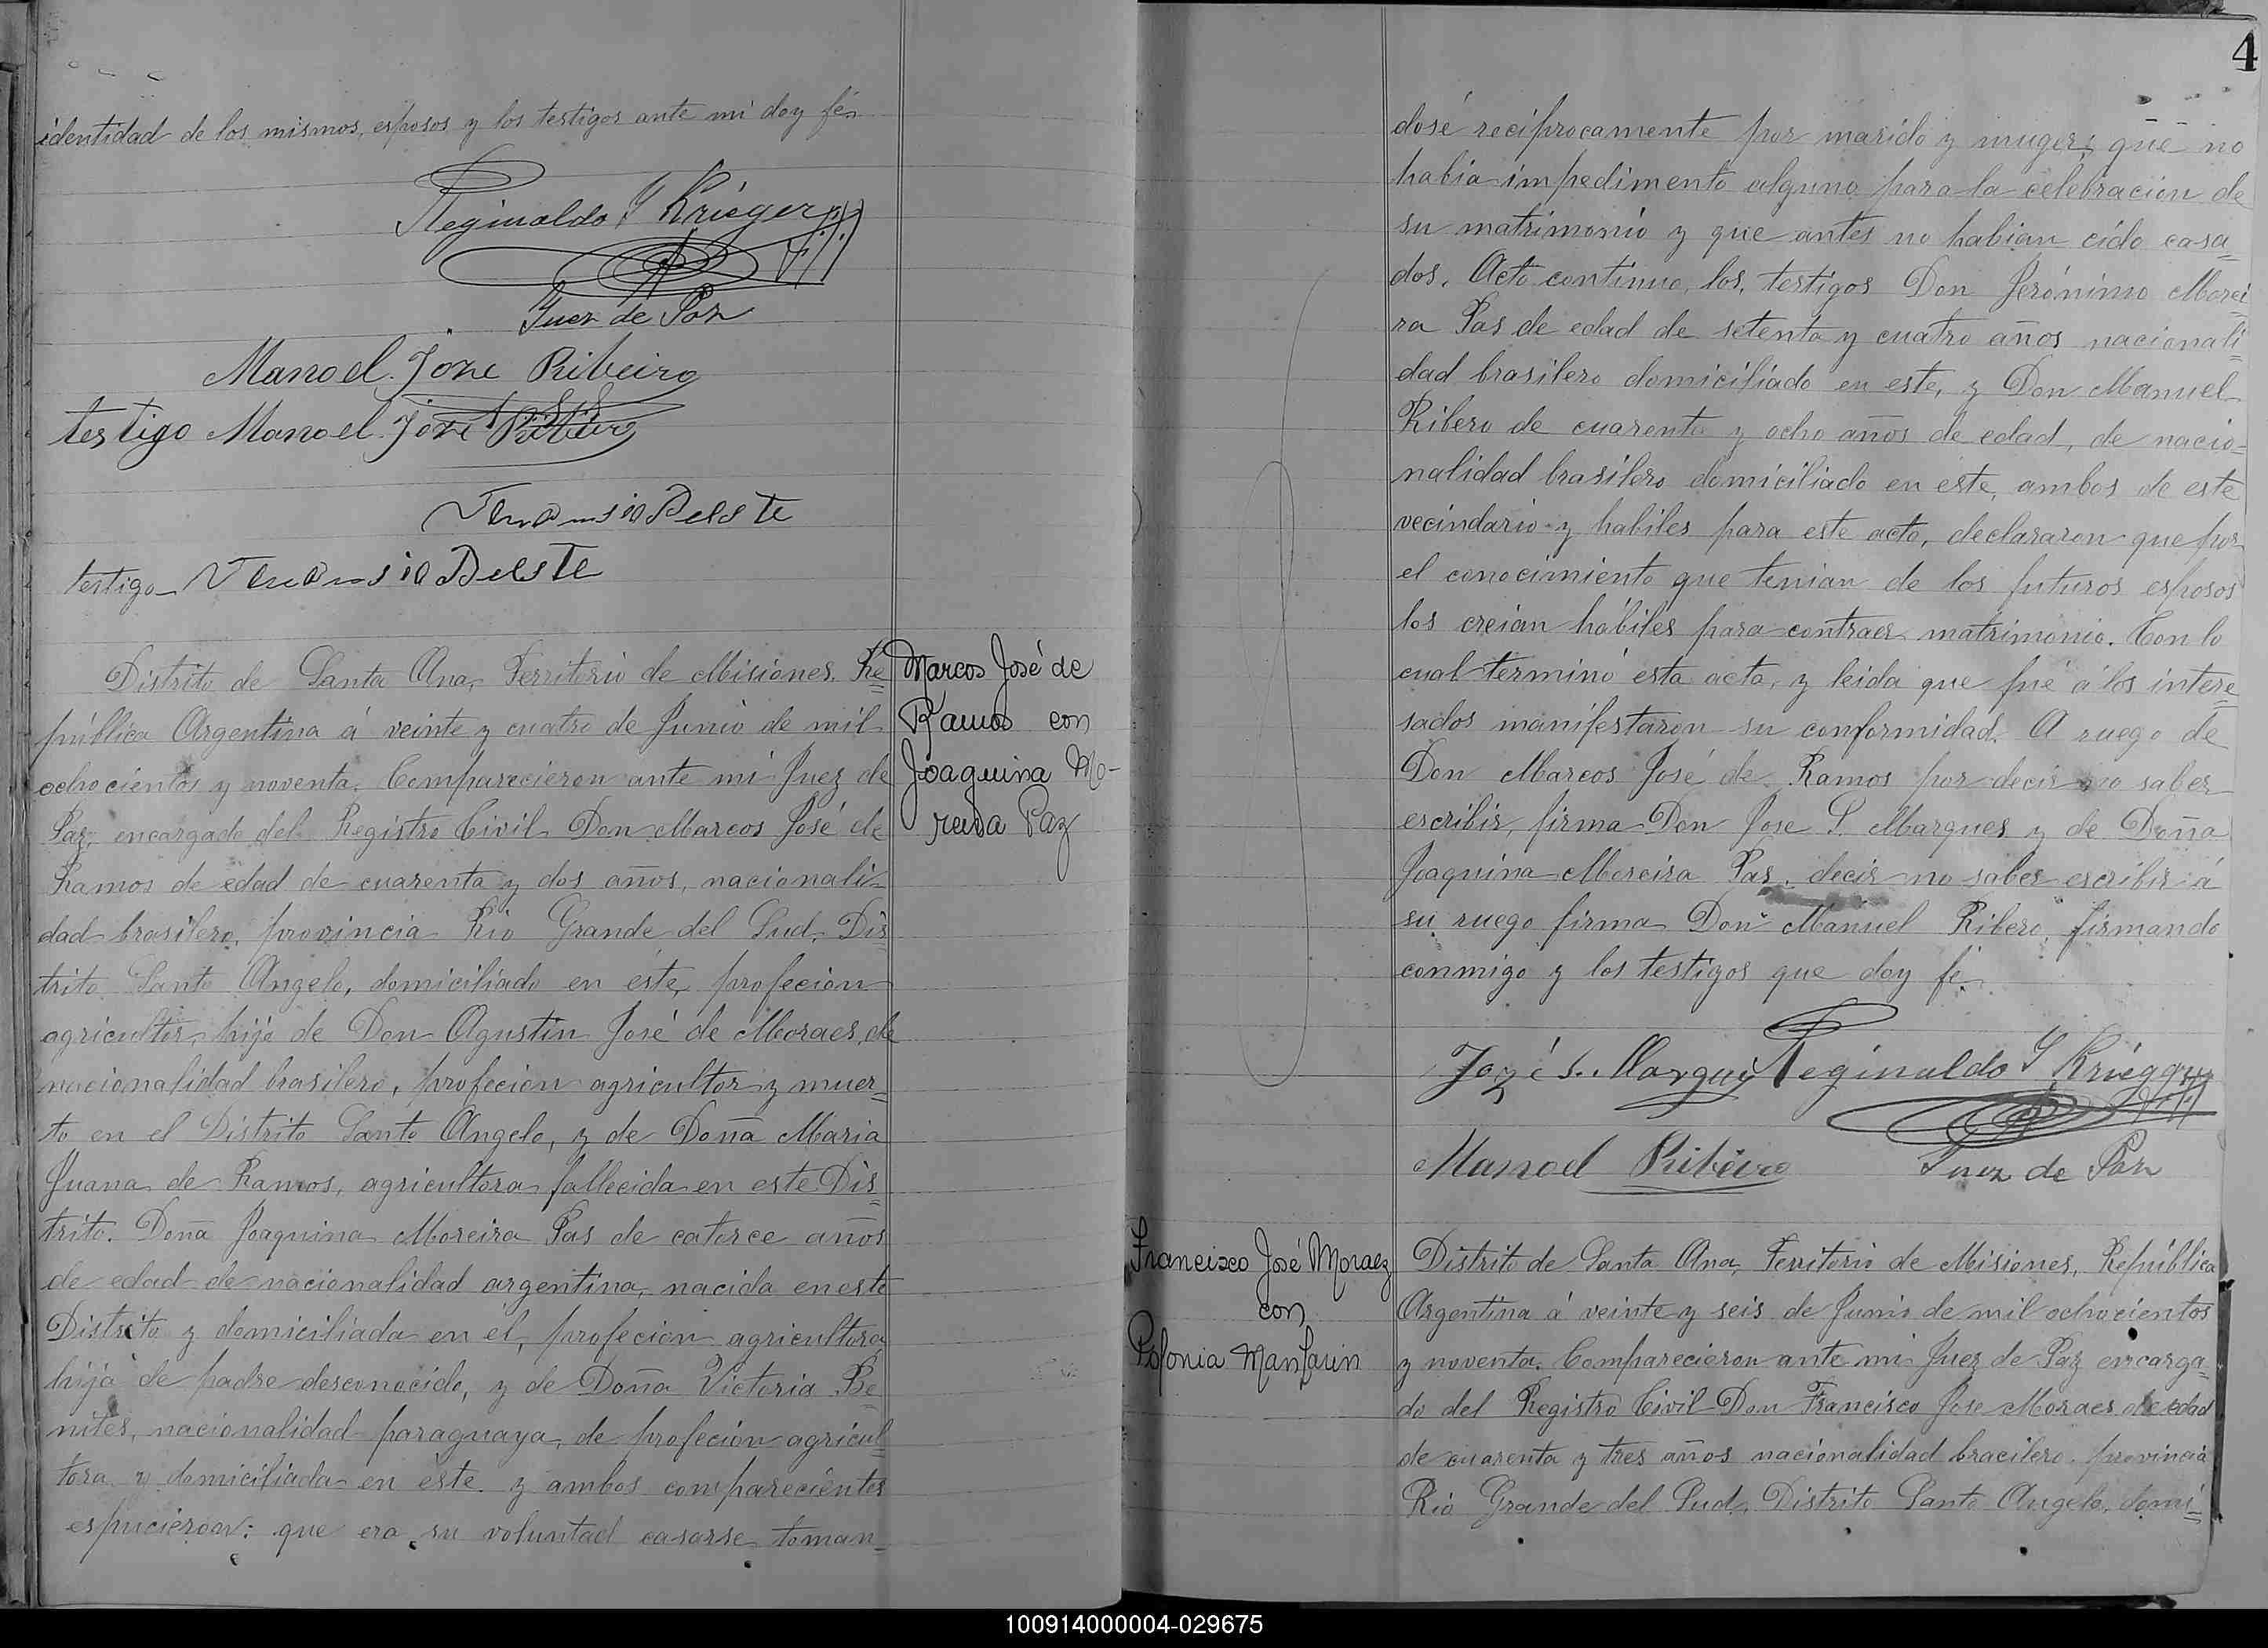 identidad de los mismos, esposos y los testigos ante mi doy fé
Reginaldo Y Krieger
Juez de Paz
Manoel Joze Ribeiro
testigo Manoel Joze Ribeiro
testigo
Distrito de Santa Ana, Territorio de Misiones, Re=
pública Argentina á veinte y cuatro de Junio de mil
ochocientos y noventa. Comparecieron ante mi Juez de
Paz, encargado del Registro Civil Don Marcos José de
Ramos de edad de cuarenta y dos años, nacionali-
dad brasilero, provincia Rio Grande del Sud, Dis=
trito Santo Angelo, domiciliado en este, profecion
agricultor, hijo de Don Agustin José de Moraes, de
nacionalidad brasilero, profecion agricultor y muer=
to en el Distrito Santo Angelo, y de Doña Maria
Juana de Ramos, agricultora fallecida en este Dis=
trito. Doña Joaquina Moreira Pas de catorce años
de edad de nacionalidad argentina, nacida en este
Distrito y domiciliada en él, profecion agricultora
hija de padre desconocido, y de Doña Victoria Be=
nites, nacionalidad paraguaya, de profecion agricul=
tora y domiciliada en este. y ambos comparecientes
espucieron: que era su voluntad casarse toman=
Marcos José de
Ramos con
Joaquina Mo-
reira Paz
4
dosé reciprocamente por marido y muger; que no
habia impedimento alguno para la celebracion de
su matrimonio y que antes no habian cido casa=
dos. Acto continuo, los, testigos Don Jerónimo Morei=
ra Pas de edad de setenta y cuatro años nacionali=
dad brasilero domiciliado en este, y Don Manuel
Ribero de cuarenta y ocho años de edad, de nacio=
nalidad brasilero domiciliado en este, ambos de este
vecindario y habiles para este acto, declararon que por
el conocimiento que tenian de los futuros esposos
los creian hábiles para contraer matrimonio. Con lo
cual terminó esta acta, y leida que fué á los intere=
sados manifestaron su conformidad. A ruego de
Don Marcos José de Ramos por decir no saber
escribir, firma Don Jose S. Marques y de Doña
Joaquina Moreira Pas, decir no saber escribir á
su ruego firma Don Manuel Ribero, firmando
conmigo y los testigos que doy fé.
Jozé S. Marques Reginaldo Y Krieger
Manoel Ribeiro Juez de Paz
Francisco José Moraez
con
Polonia
Distrito de Santa Ana, Territorio de Misiones, República
Argentina á veinte y seis de Junio de mil ochocientos
y noventa. Comparecieron ante mi Juez de Paz encarga=
do del Registro Civil Don Francisco Jose Moraes de edad
de cuarenta y tres años nacionalidad bracilero, provincia
Rio Grande del Sud, Distrito Santo Angelo, domi=
100914000004-029675